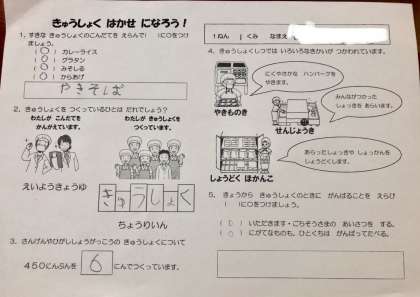 きゅうしょく はかせ になろう!
1ねん 1くみ なまえ
1、すきな きゅうしょくのこんだてを えらんで( )に○をつけ
ましょう。
(○)カレーライス
(○)グラタン
(○)みそしる
(○)からあげ
やきそば
2、きゅうしょくを つくっているひとは だれでしょう?
わたしが こんだてを
かんがえています。
わたしが きゅうしょくを
つくっています。
えいようきょうゆ
きゅうしょく
ちょうりいん
3、さんげんやひがししょうがっこうの きゅうしょくについて
450にんぶんを 6 にんでつくっています。
4、きゅうしょくしつでは いろいろなきかいが つかわれています。
にくやさかな ハンバーグを
やきます。
やきものき
みんながつかった
しょっきを あらいます。
せんじょうき
あらったしょっきや しょっかんを
しょうどくします。
しょうどく ほかんこ
5、きょうから きゅうしょくのときに がんばることを えらび
( )に○をつけましょう。
(○)いただきます・ごちそうさまの あいさつを する。
(○)にがてなものも、ひとくちは がんばってたべる。